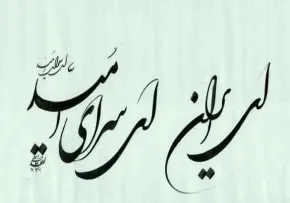 ای ایران ای سرای امید